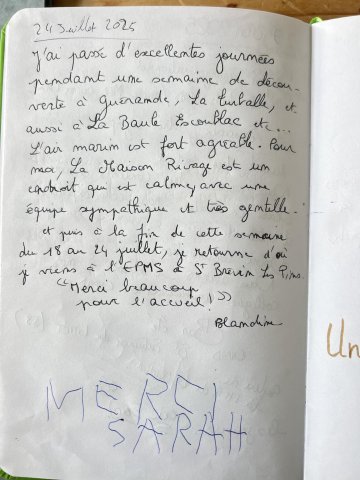 24 Juillet 2025
J'ai passé d'excellentes journées
pendant une semaine de décou-
verte à Guérande, La Turballe, et
aussi à La Baule Escoublac etc...
L'air marin est fort agréable. Pour
moi, La Maison Rivage est un
endroit qui est calme, avec une
équipe sympathique et très gentelle.
et puis à la fin de cette semaine
du 18 au 24 juillet, je retourne d'où
je viens à l'EPMS à St Brévin Les Pins.
"Merci beaucoup
pour l'accueil!"
Blandine
MERCI
SARAH
Un